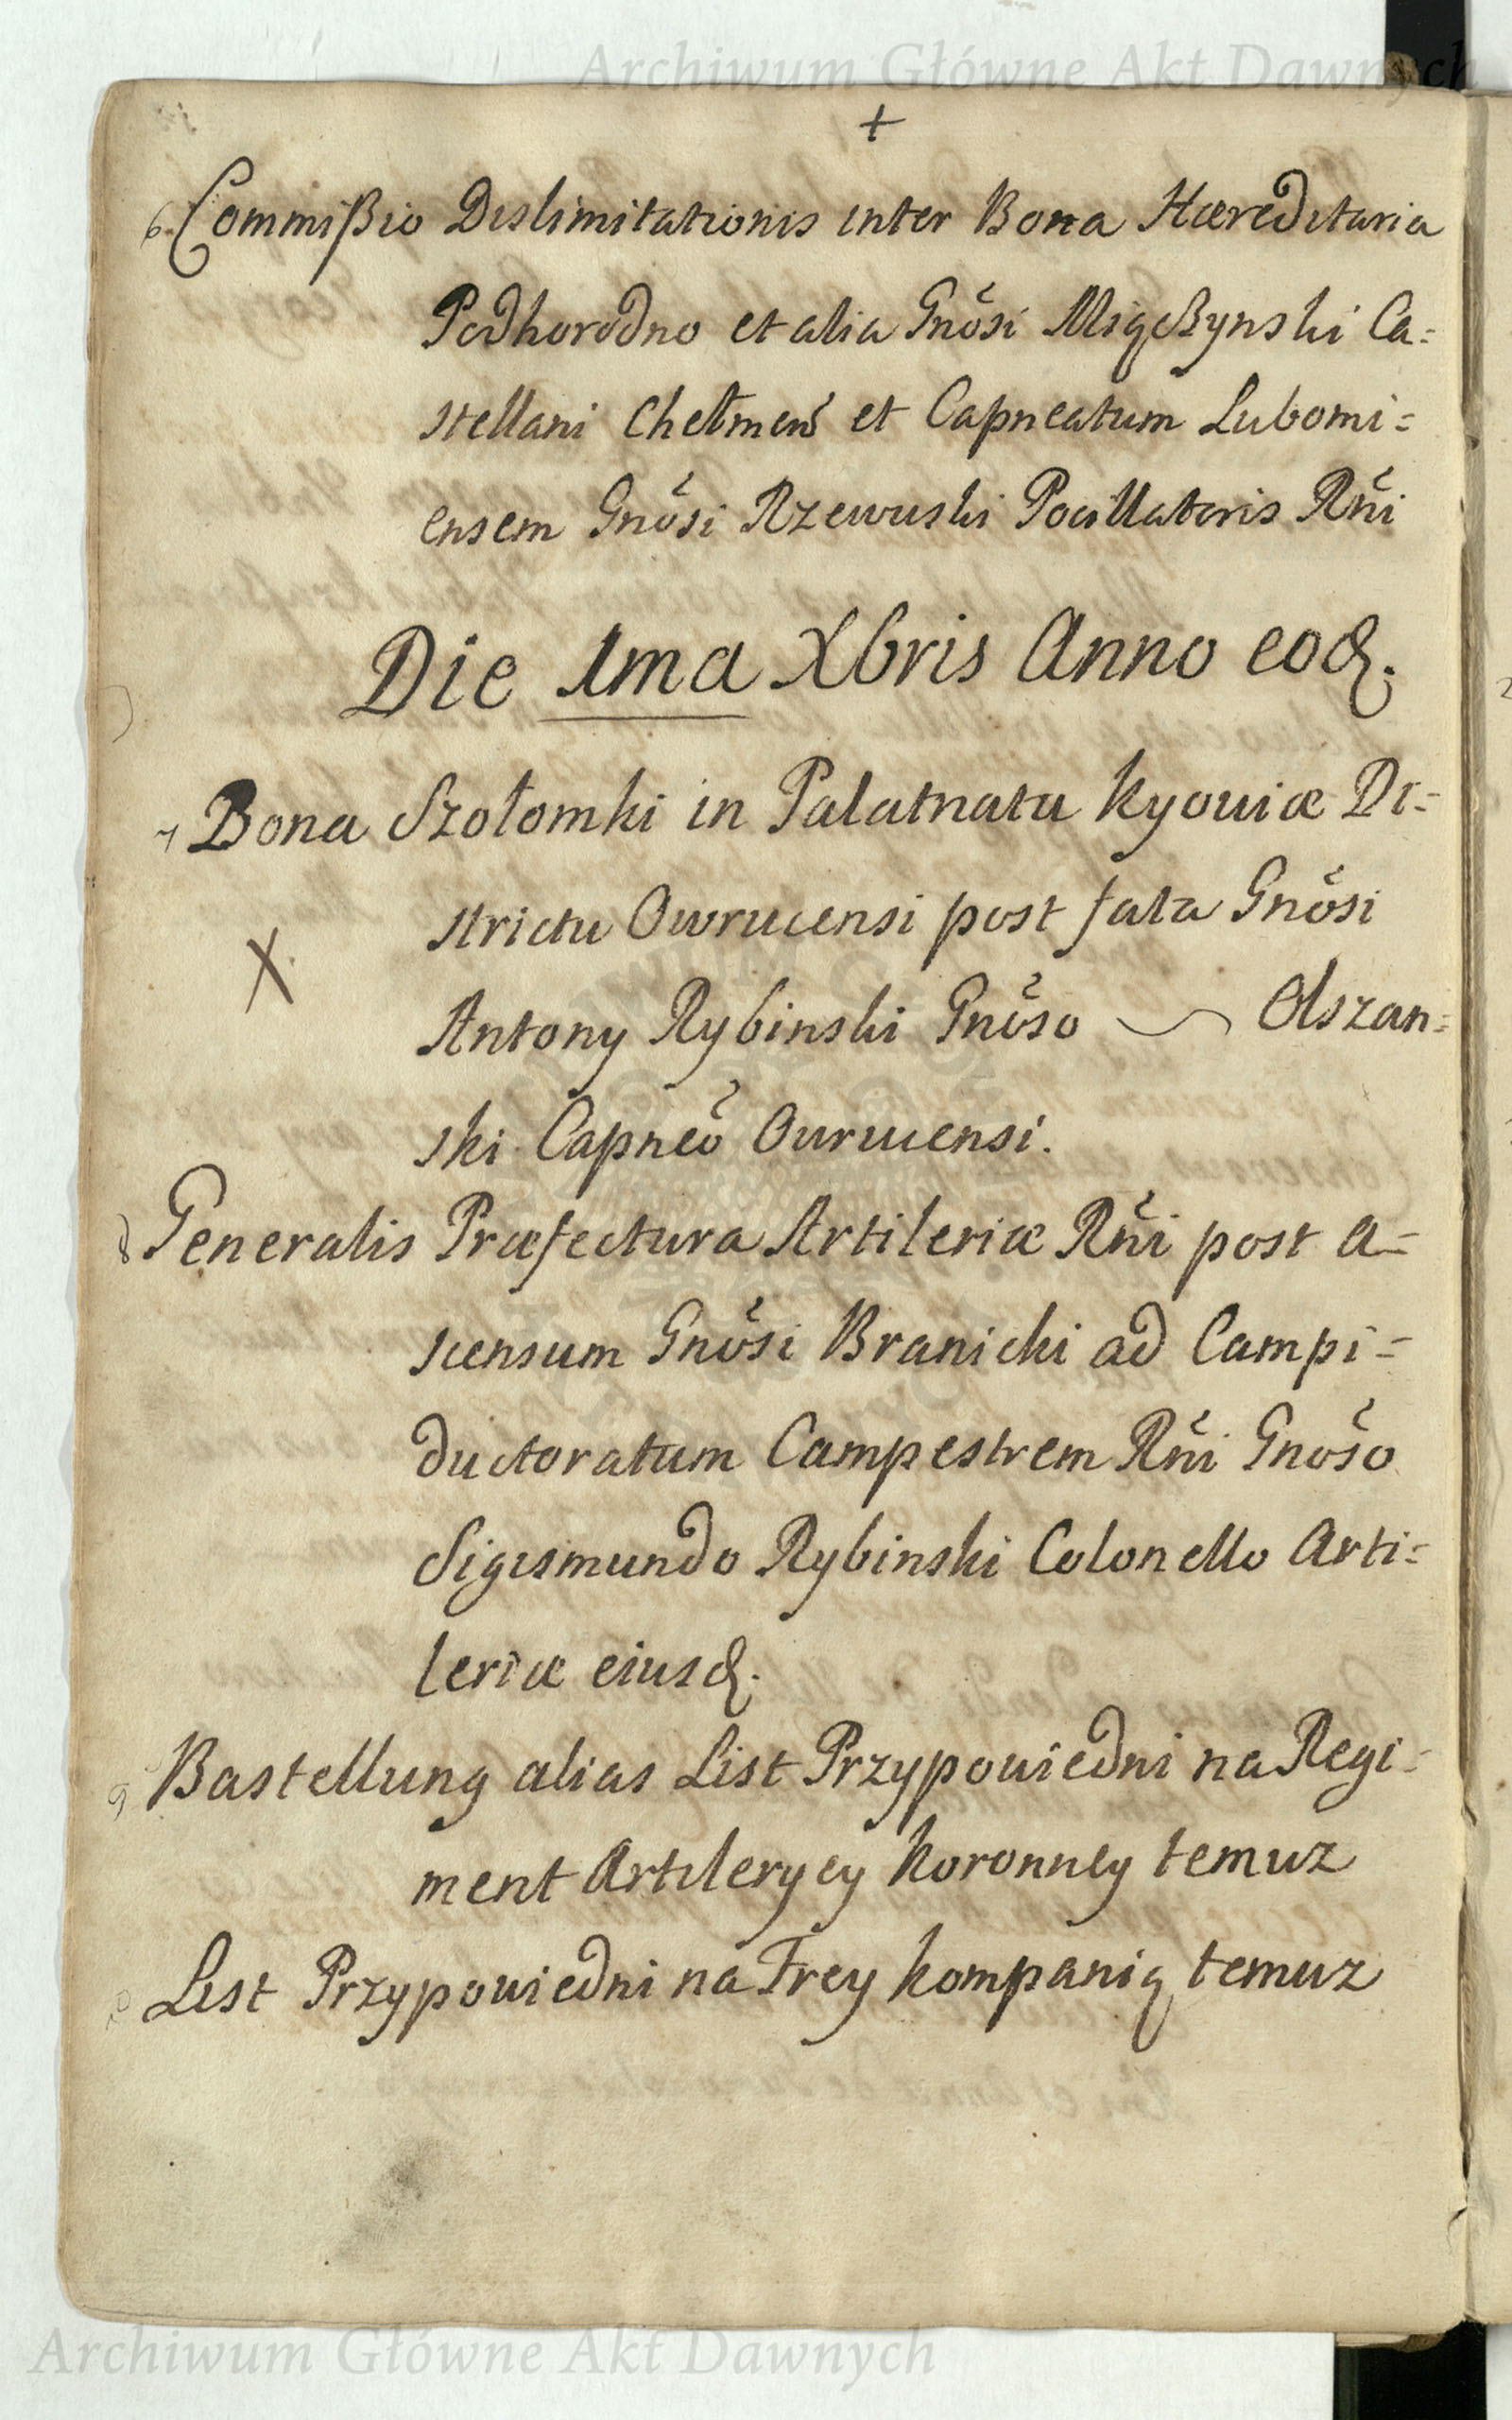 Archiwum Główne Akt Dawnych
+
6. Commißio Dislimitationis inter Bona Hæreditaria
Podhorodno et alia Gnõsi Miączynski Ca=
stellani Chełmeñ et Capneatum Lubomi=
ensem Gnõsi Rzewuski Pocillatoris Rñi
Die 1ma Xbris Anno eod.
7 Bona Szołomki in Palatnatu Kyoviæ Di=
strictu Owrucensi post fata Gnõsi
X.
Antony Rybinski Gnõso ~ Olszan=
ski Capneõ Owrucensi.
8 Generalis Præfectura Artileriæ Rñi post a=
scensum Gnõsi Branicki ad Campi=
ductoratum Campestrem Rñi Gnõso
Sigismundo Rybinski Colonello Arti=
leriæ eiusd.
9 Bastellung alias List Przypowiedni na Regi=
ment Artileryey Koronney temuz
List Przypowiedni na Frey kompanią temuz
Archiwum Główne Akt Dawnych